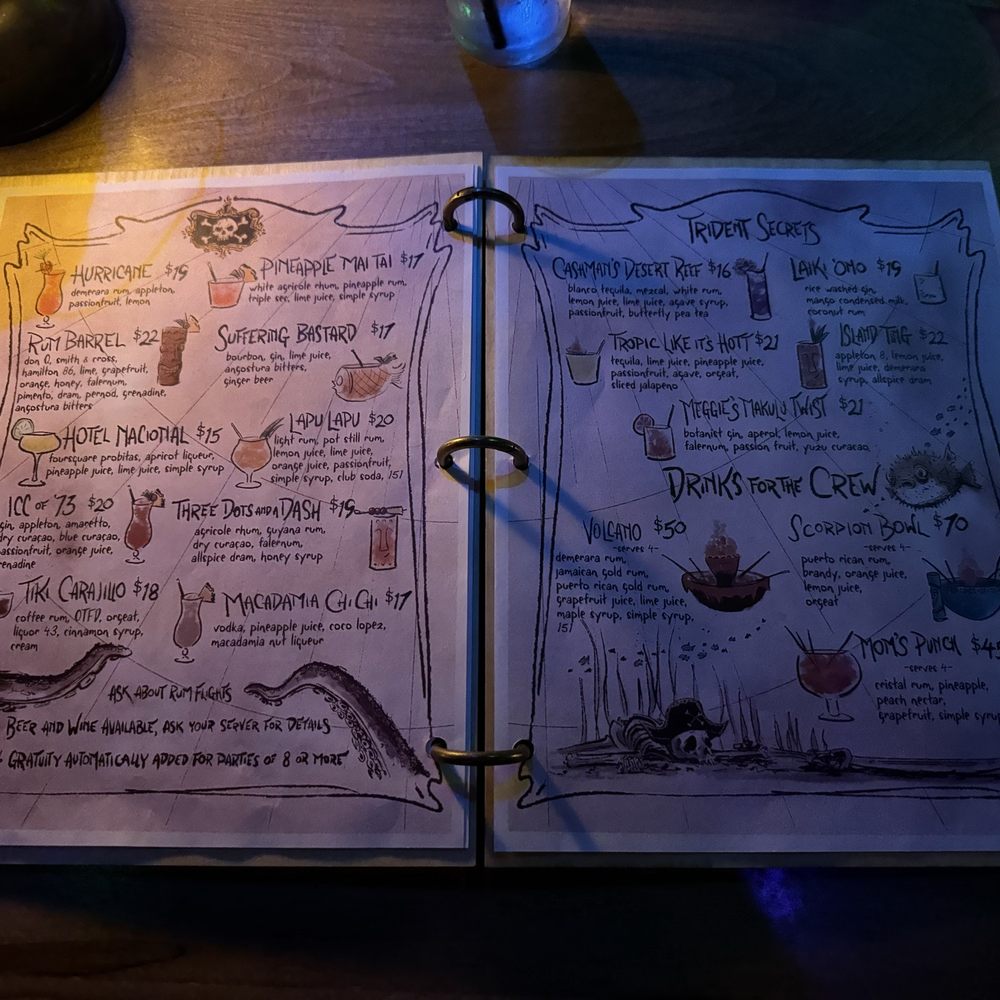 HURRICANE $19
demerara rum, appleton,
passionfruit, lemon
PINEAPPLE MAI TAI $17
white agricole rhum, pineapple rum,
triple sec, lime juice, simple syrup
RUM BARREL $22
don Q, smith & cross,
hamilton 86, lime, grapefruit,
orange, honey, falernum,
pimento, dram, pernod, grenadine,
angostura bitters
SUFFERING BASTARD $17
bourbon, gin, lime juice,
angostura bitters,
ginger beer
HOTEL NACIONAL $15
foursquare probitas, apricot liqueur,
pineapple juice, lime juice, simple syrup
LAPU LAPU $20
light rum, pot still rum,
lemon juice, lime juice,
orange juice, passionfruit,
simple syrup, club soda, 151
ICC OF '73 $20
gin, appleton, amaretto,
dry curaçao, blue curacao,
passionfruit, orange juice,
grenadine
THREE DOTS AND A DASH $19
agricole rhum, guyana rum,
dry curaçao, falernum,
allspice dram, honey syrup
TIKI CARAJILLO $18
coffee rum, OTFD, orgeat,
liquor 43, cinnamon syrup,
cream
MACADAMIA CHI CHI $17
vodka, pineapple juice, coco lopez,
macadamia nut liqueur
ASK ABOUT RUM FLIGHTS
BEER AND WINE AVAILABLE, ASK YOUR SERVER FOR DETAILS
GRATUITY AUTOMATICALLY ADDED FOR PARTIES OF 8 OR MORE
TRIDENT SECRETS
CASHMAN'S DESERT REEF $16
blanco tequila, mezcal, white rum,
lemon juice, lime juice, agave syrup,
passionfruit, butterfly pea tea
LAIKI 'OMO $19
rice washed gin,
mango condensed milk,
coconut rum
TROPIC LIKE IT'S HOT! $21
tequila, lime juice, pineapple juice,
passionfruit, agave, orgeat,
sliced jalapeno
ISLAND TING $22
appleton 8, lemon juice,
lime juice, demerara
syrup, allspice dram
MEGGIE'S MAKULU TWIST $21
botanist gin, aperol, lemon juice,
falernum, passion fruit, yuzu curacao,
DRINKS FOR THE CREW
VOLCANO $50
-serves 4-
demerara rum,
jamaican gold rum,
puerto rican gold rum,
grapefruit juice, lime juice,
maple syrup, simple syrup,
151
SCORPION BOWL $70
-serves 4-
puerto rican rum,
brandy, orange juice,
lemon juice,
orgeat
MOM'S PUNCH $45
-serves 4-
cristal rum, pineapple,
peach nectar,
grapefruit, simple syrup